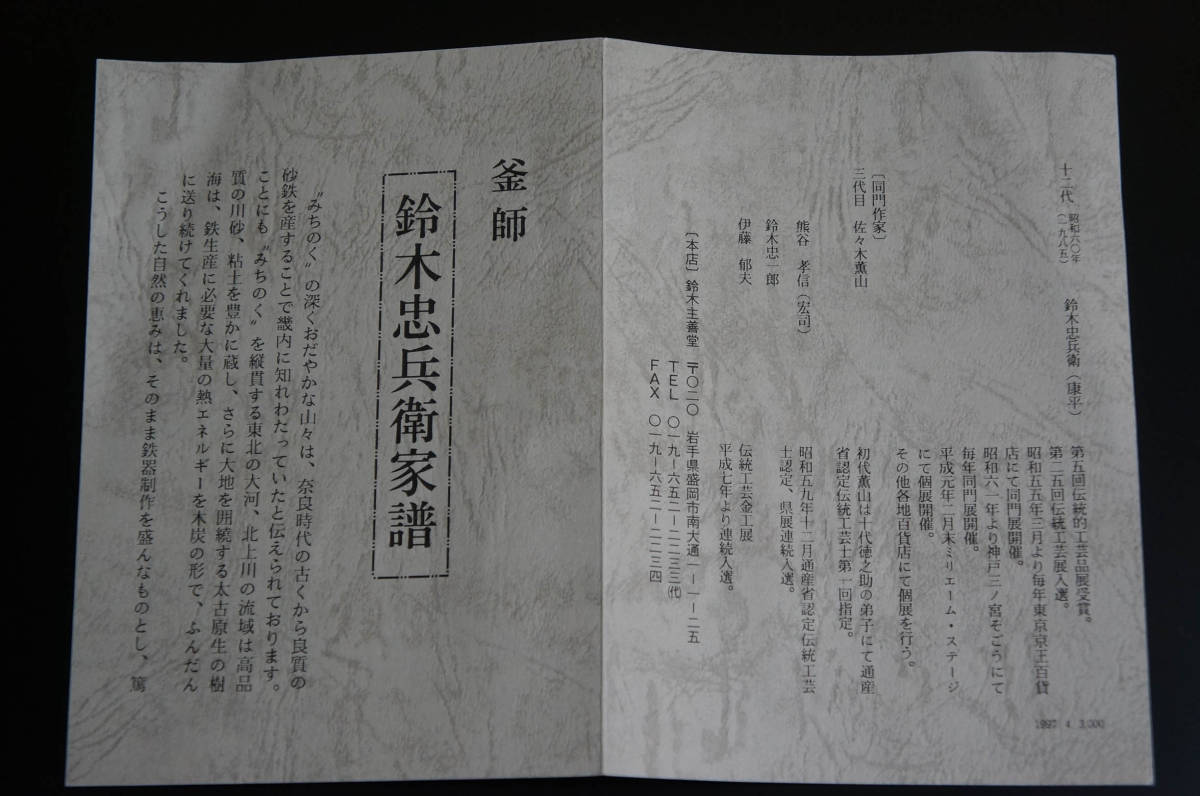 十二代 昭和六〇年(一九八五) 鈴木忠兵衛(康平)
第五回伝統的工芸品展受賞。
第二五回伝統工芸展入選。
昭和五五年三月より毎年東京京王百貨
店にて同門展開催。
昭和六一年より神戸三ノ宮そごうにて
毎年同門展開催。
平成元年二月末ミリエーム・ステージ
にて個展開催。
その他各地百貨店にて個展を行う。
〔同門作家〕
三代目 佐々木薫山
初代薫山は十代徳之助の弟子にて通産
省認定伝統工芸士第一回指定。
熊谷 孝信(宏司)
昭和五九年十二月通産省認定伝統工芸
士認定、県展連続入選。
鈴木忠一郎
伊藤 郁夫
伝統工芸金工展
平成七年より連続入選。
〔本店〕鈴木主善堂 〒〇二〇 岩手県盛岡市南大通一―一―二五
TEL 〇一九―六五二―二二三三㈹
FAX 〇一九―六五二―二二三四
1997 4 3,000
釜師
鈴木忠兵衛家譜
〝みちのく〟の深くおだやかな山々は、奈良時代の古くから良質の
砂鉄を産することで畿内に知れわたっていたと伝えられております。
ことにも〝みちのく〟を縦貫する東北の大河、北上川の流域は高品
質の川砂、粘土を豊かに蔵し、さらに大地を囲繞する太古原生の樹
海は、鉄生産に必要な大量の熱エネルギーを木炭の形で、ふんだん
に送り続けてくれました。
こうした自然の恵みは、そのまま鉄器制作を盛んなものとし、篤